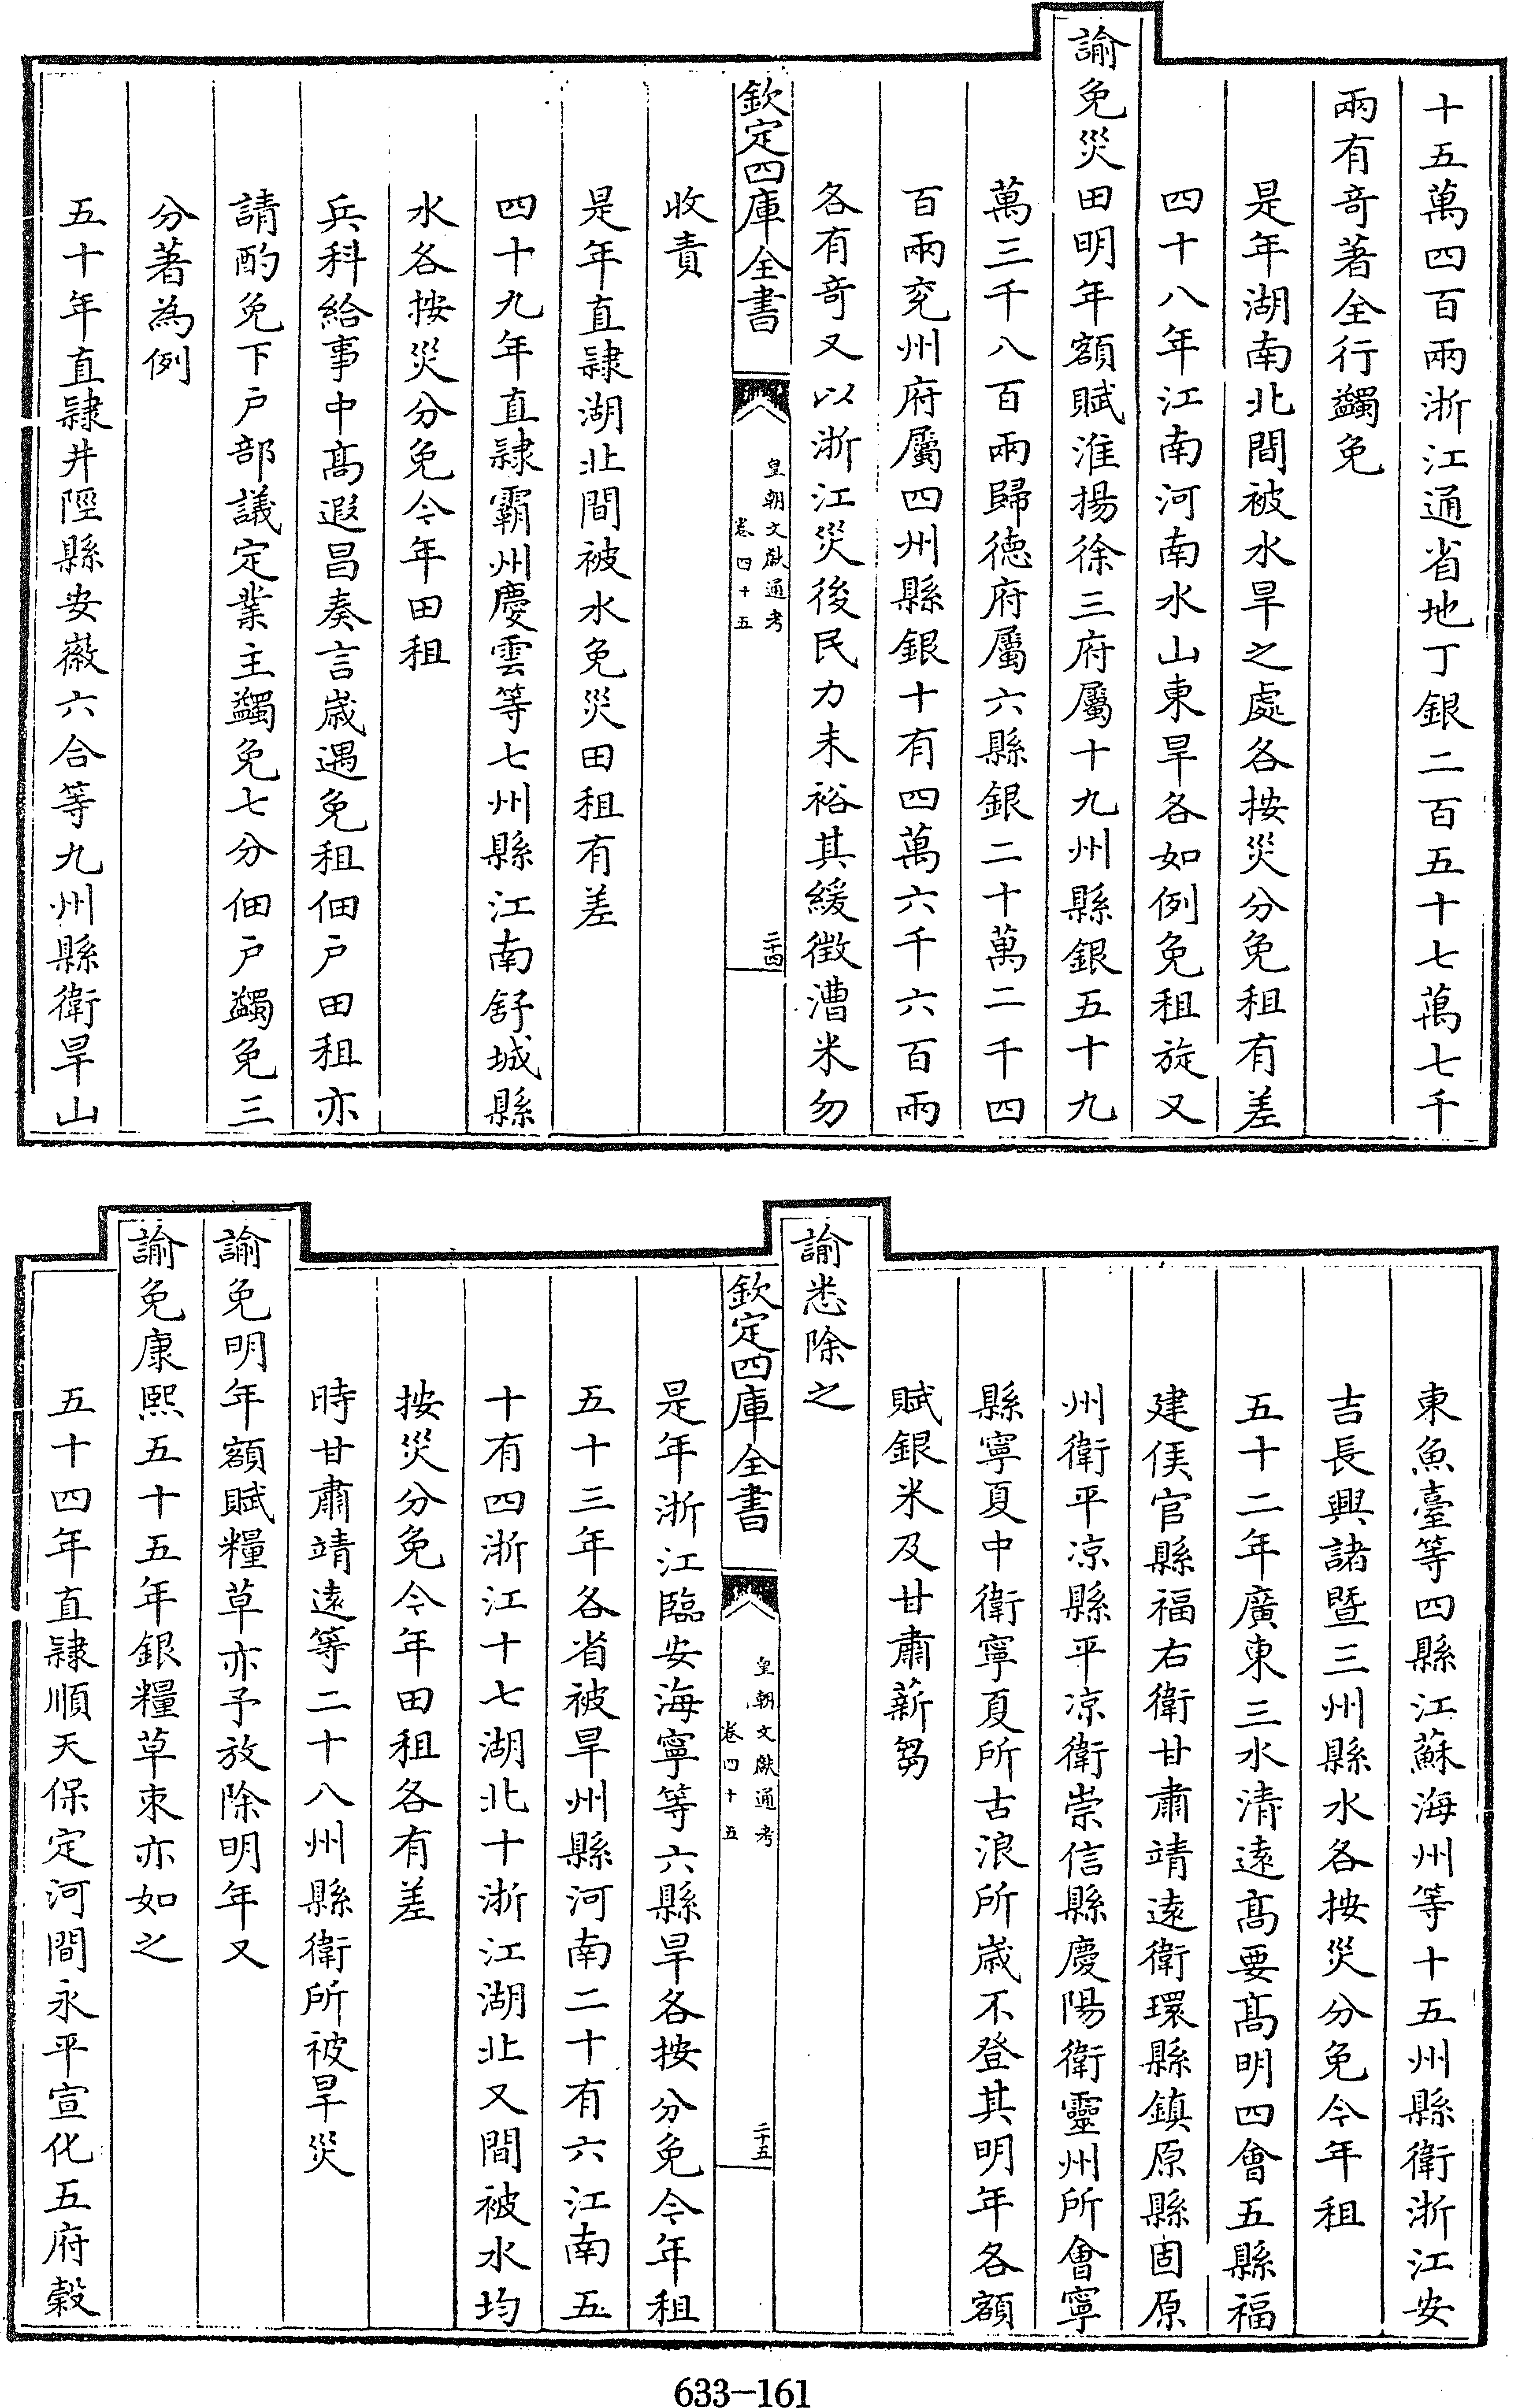 十五萬四百兩浙江通省地丁銀二百五十七萬七千
兩有奇著全行蠲免
是年湖南北間被水旱之處各按災分免租有差
四十八年江南河南水山東旱各如例免租旋又
諭免災田明年額賦淮揚徐三府屬十九州縣銀五十九
萬三千八百兩歸德府屬六縣銀二十萬二千四
百兩兖州府屬四州縣銀十有四萬六千六百兩
各有奇又以浙江災後民力未裕其緩徴漕米勿
欽定四庫全書
皇朝文獻通考
卷四十五
二十四
收責
是年直隷湖北間被水免災田租有差
四十九年直隷霸州慶雲等七州縣江南舒城縣
水各按災分免今年田租
兵科給事中髙遐昌奏言歳遇免租佃户田租亦
請酌免下户部議定業主蠲免七分佃户蠲免三
分著為例
五十年直隷井陘縣安徽六合等九州縣衛旱山
東魚臺等四縣江蘇海州等十五州縣衛浙江安
吉長興諸暨三州縣水各按災分免今年租
五十二年廣東三水清逺髙要髙明四會五縣福
建侯官縣福右衛甘肅靖逺衛環縣鎮原縣固原
州衛平凉縣平凉衛崇信縣慶陽衛靈州所會寧
縣寧夏中衛寧夏所古浪所歳不登其明年各額
賦銀米及甘肅薪芻
諭悉除之
欽定四庫全書
皇朝文獻通考
卷四十五
二十五
是年浙江臨安海寧等六縣旱各按分免今年租
五十三年各省被旱州縣河南二十有六江南五
十有四浙江十七湖北十浙江湖北又間被水均
按災分免今年田租各有差
時甘肅靖逺等二十八州縣衛所被旱災
諭免明年額賦糧草亦予放除明年又
諭免康熙五十五年銀糧草束亦如之
五十四年直隷順天保定河間永平宣化五府穀
633-161